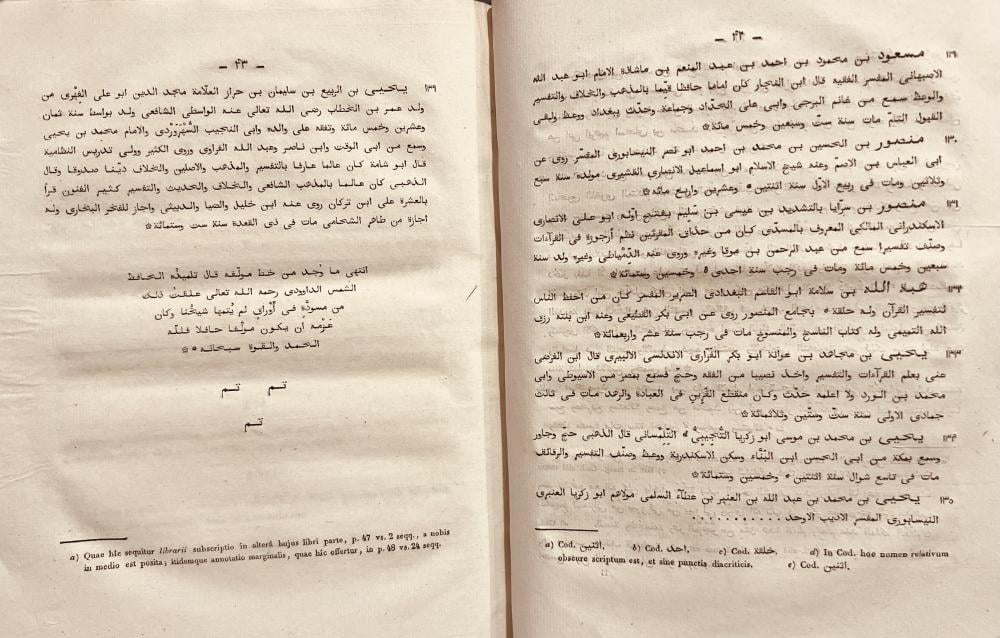 — ۴۲ —
۱۲۹ مسعود بن محمود بن احمد بن عبد المنعم بن ماشاذة الامام ابو عبد الله
الاصبهانى المفسر الفقيه قال ابن النجار كان اماما حافظا قيّما بالمذهب والخلاف والتفسير
والوعظ سمع من غانم البرجى وابى على الحدّاد وجماعة وحدّث ببغداد ووعظ ولقى
القبول التامّ مات سنة ستّ وسبعين وخمس مائة *
۱۳۰ منصور بن الحسين بن محمد بن احمد ابو نصر النيسابورى المفسّر روى عن
ابى العباس بن الاصمّ وعنه شيخ الاسلام ابو اسماعيل الانصارى القشيرى مولده سنة سبع
وثلاثين ومات فى ربيع الاوّل سنة اثنتين a وعشرين واربع مائة *
۱۳۱ منصور بن سرّايا بالتشديد بن عيسى بن سَليم بفتح اوّله ابو على الانصارى
الاسكندرانى المالكى المعروف بالمسدّى كان من حذاق المقرئين نظم ارجوزة فى القرآءات
وصنّف تفسيرا سمع من عبد الرحمن بن موقا وغيره وروى عنه الدّمْياطى وغيره ولد سنة
سبعين وخمس مائة ومات فى رجب سنة احدى b وخمسين وستمائة *
۱۳۲ هبة الله بن سلامة ابو القاسم البغدادى الضرير المفسر كان من احفظ الناس
لتفسير القرآن وله حلقة c بجامع المنصور روى عن ابى بكر القطيعى وعنه ابن بنته رزق
الله التميمى وله كتاب الناسخ والمنسوخ مات فى رجب سنة عشر واربعمائة *
۱۳۳ يحيى بن مجاهد بن عوانة ابو بكر الفزارى الاندلسى الالبيرى قال ابن الفرضى
عنى بعلم القرآءات والتفسير واخذ نصيبا من الفقه وحجّ فسمع بمصر من الاسيوطى وابى
محمد بن الورد ولا اعلمه حدّث وكان منقطع القَرِين فى العبادة والزهد مات فى ثالث
جمادى الاولى سنة ستّ وستّين وثلاثمائة *
۱۳۴ يحيى بن محمد بن موسى ابو زكريا التُّجِيبِىُّ d التِّلِمْسانى قال الذهبى حجّ وجاور
وسمع بمكة من ابى الحسن ابن البنّاء وسكن الاسكندرية ووعظ وصنّف التفسير والرقائق
مات فى تاسع شوال سنة اثنتين e وخمسين وستمائة *
۱۳٥ يحيى بن محمد بن عبد الله بن العنبر بن عطآء السلمى مولاهم ابو زكريا العنبرى
النيسابورى المفسر الاديب الاوحد . . . . . . . . . . .
a) Cod. اثنين. b) Cod. احد. c) Cod. خلقة. d) In Cod. hoc nomen relativum
obscure scriptum est, et sine punctis diacriticis. e) Cod. اثنين.
— ۴۳ —
۱۳۶ يحيى بن الربيع بن سليمان بن حراز العلّامة مجد الدين ابو على الفِهْرى من
ولد عمر بن الخطاب رضى الله تعالى عنه الواسطى الشافعى ولد بواسط سنة ثمان
وعشرين وخمس مائة وتفقه على والده وابى النجيب السُّهْرَوَرْدى والامام محمد بن يحيى
وسمع من ابى الوقت وابن ناصر وعبد الله الفراوى وروى الكثير وولى تدريس النظامية
قال ابو شامة كان عالما عارفا بالتفسير والمذهب والاصلين والخلاف ديّنا صدوقا وقال
الذهبى كان عالما بالمذهب الشافعى والخلاف والحديث والتفسير كثير الفنون قرأ
بالعشرة على ابن تركان روى عنه ابن خليل والضيا والدبيثى واجاز للفخر البخارى وله
اجازة من طاهر الشحامى مات فى ذى القعدة سنة ست وستمائة *
انتهى ما وُجد من خط مولفه قال تلميذُه الحافظ
الشمس الداوودى رحمه الله تعالى علّقتُ ذلك
من مسودّةٍ فى أوْراقٍ لم يُتمها شيخُنا وكان
عَزْمه أن يكون مولّفا حافلا فلله
الحمد والقوة سبحانه a *
تم تم
تم
a) Quae hîc sequitur librarii subscriptio in alterâ hujus libri parte, p. 47 vs. 2 seqq., a nobis
in medio est posita; itidemque annotatio marginalis, quae hîc offertur, in p. 48 vs. 24 seqq.